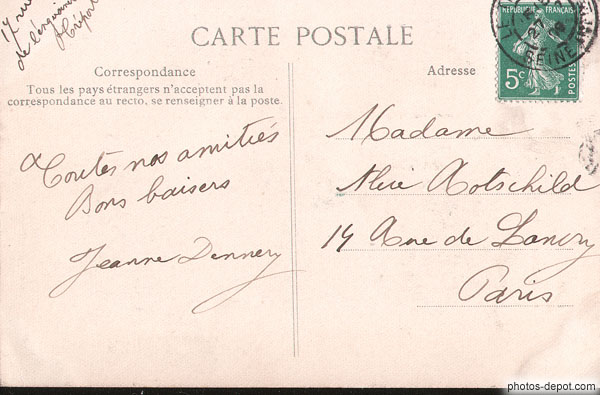 17 rue
de
CARTE POSTALE
Correspondance
Tous les pays étrangers n'acceptent pas la
correspondance au recto, se renseigner à la poste.
Toutes nos amitiés
Bons baisers
Jeanne Dennery
Adresse
RÉPUBLIQUE FRANÇAISE
5c
POSTES
SEINE INFRE
Madame
Alice Rotschild
14 Rue de Lancry
Paris
photos-depot.com